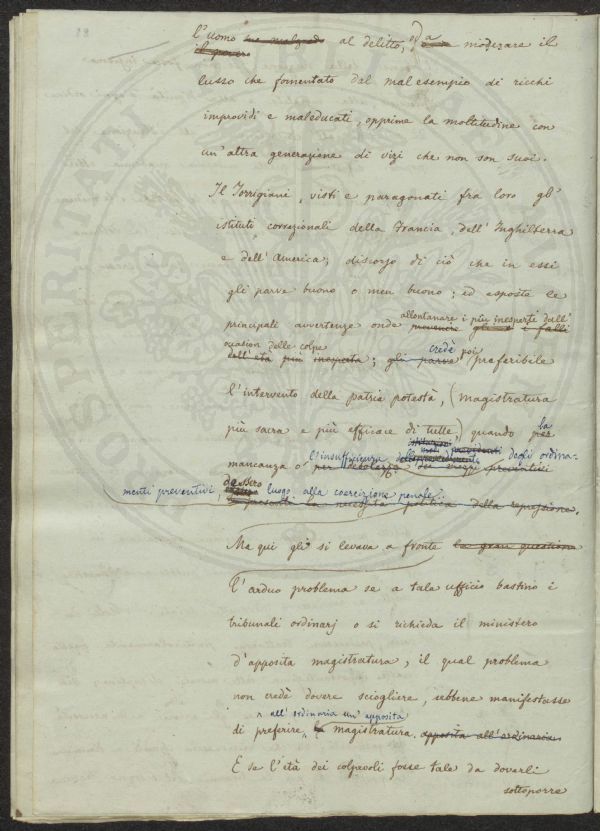 22
l'uomo ~~ma malgrado~~ al delitto, o a moderare il
~~il povero~~
lusso che fomentato dal mal esempio di ricchi
improvidi e maleducati, opprime la moltitudine con
un'altra generazione di vizi che non son suoi.
Il Torrigiani, visti e paragonati fra loro gl'
istituti correzionali della Francia, dell'Inghilterra
e dell'America; discorso di ciò che in essi
gli parve buono o men buono; ed esposte le
allontanare i più inesperti dall'
principali avvertenze onde ~~prevenire gli e i falli~~
occasion delle colpe credè poi
~~dell'età più inesperta~~; ~~gli parve~~ preferibile
l'intervento della patria potestà, (magistratura
più sacra e più efficace di tutte) quando ~~per~~ la
~~istituzioni~~
modi ~~provvedenti~~
l'insufficienza degli ordina-
mancanza o ~~per debolezza dei mezzi preventivi~~
dessero
menti preventivi, luogo alla coercizione penale.
~~si presenti la necessità politica della repressione.~~
Ma qui gli si levava a fronte ~~la gran questione~~
l'arduo problema se a tale ufficio bastino i
tribunali ordinarj o si richieda il ministero
d'apposita magistratura, il qual problema
non credè dovere sciogliere, sebbene manifestasse
all'ordinaria un'apposita
di preferire, ~~la~~ magistratura. ~~apposita all'ordinaria~~
E se l'età dei colpevoli fosse tale da doverli
sottoporre